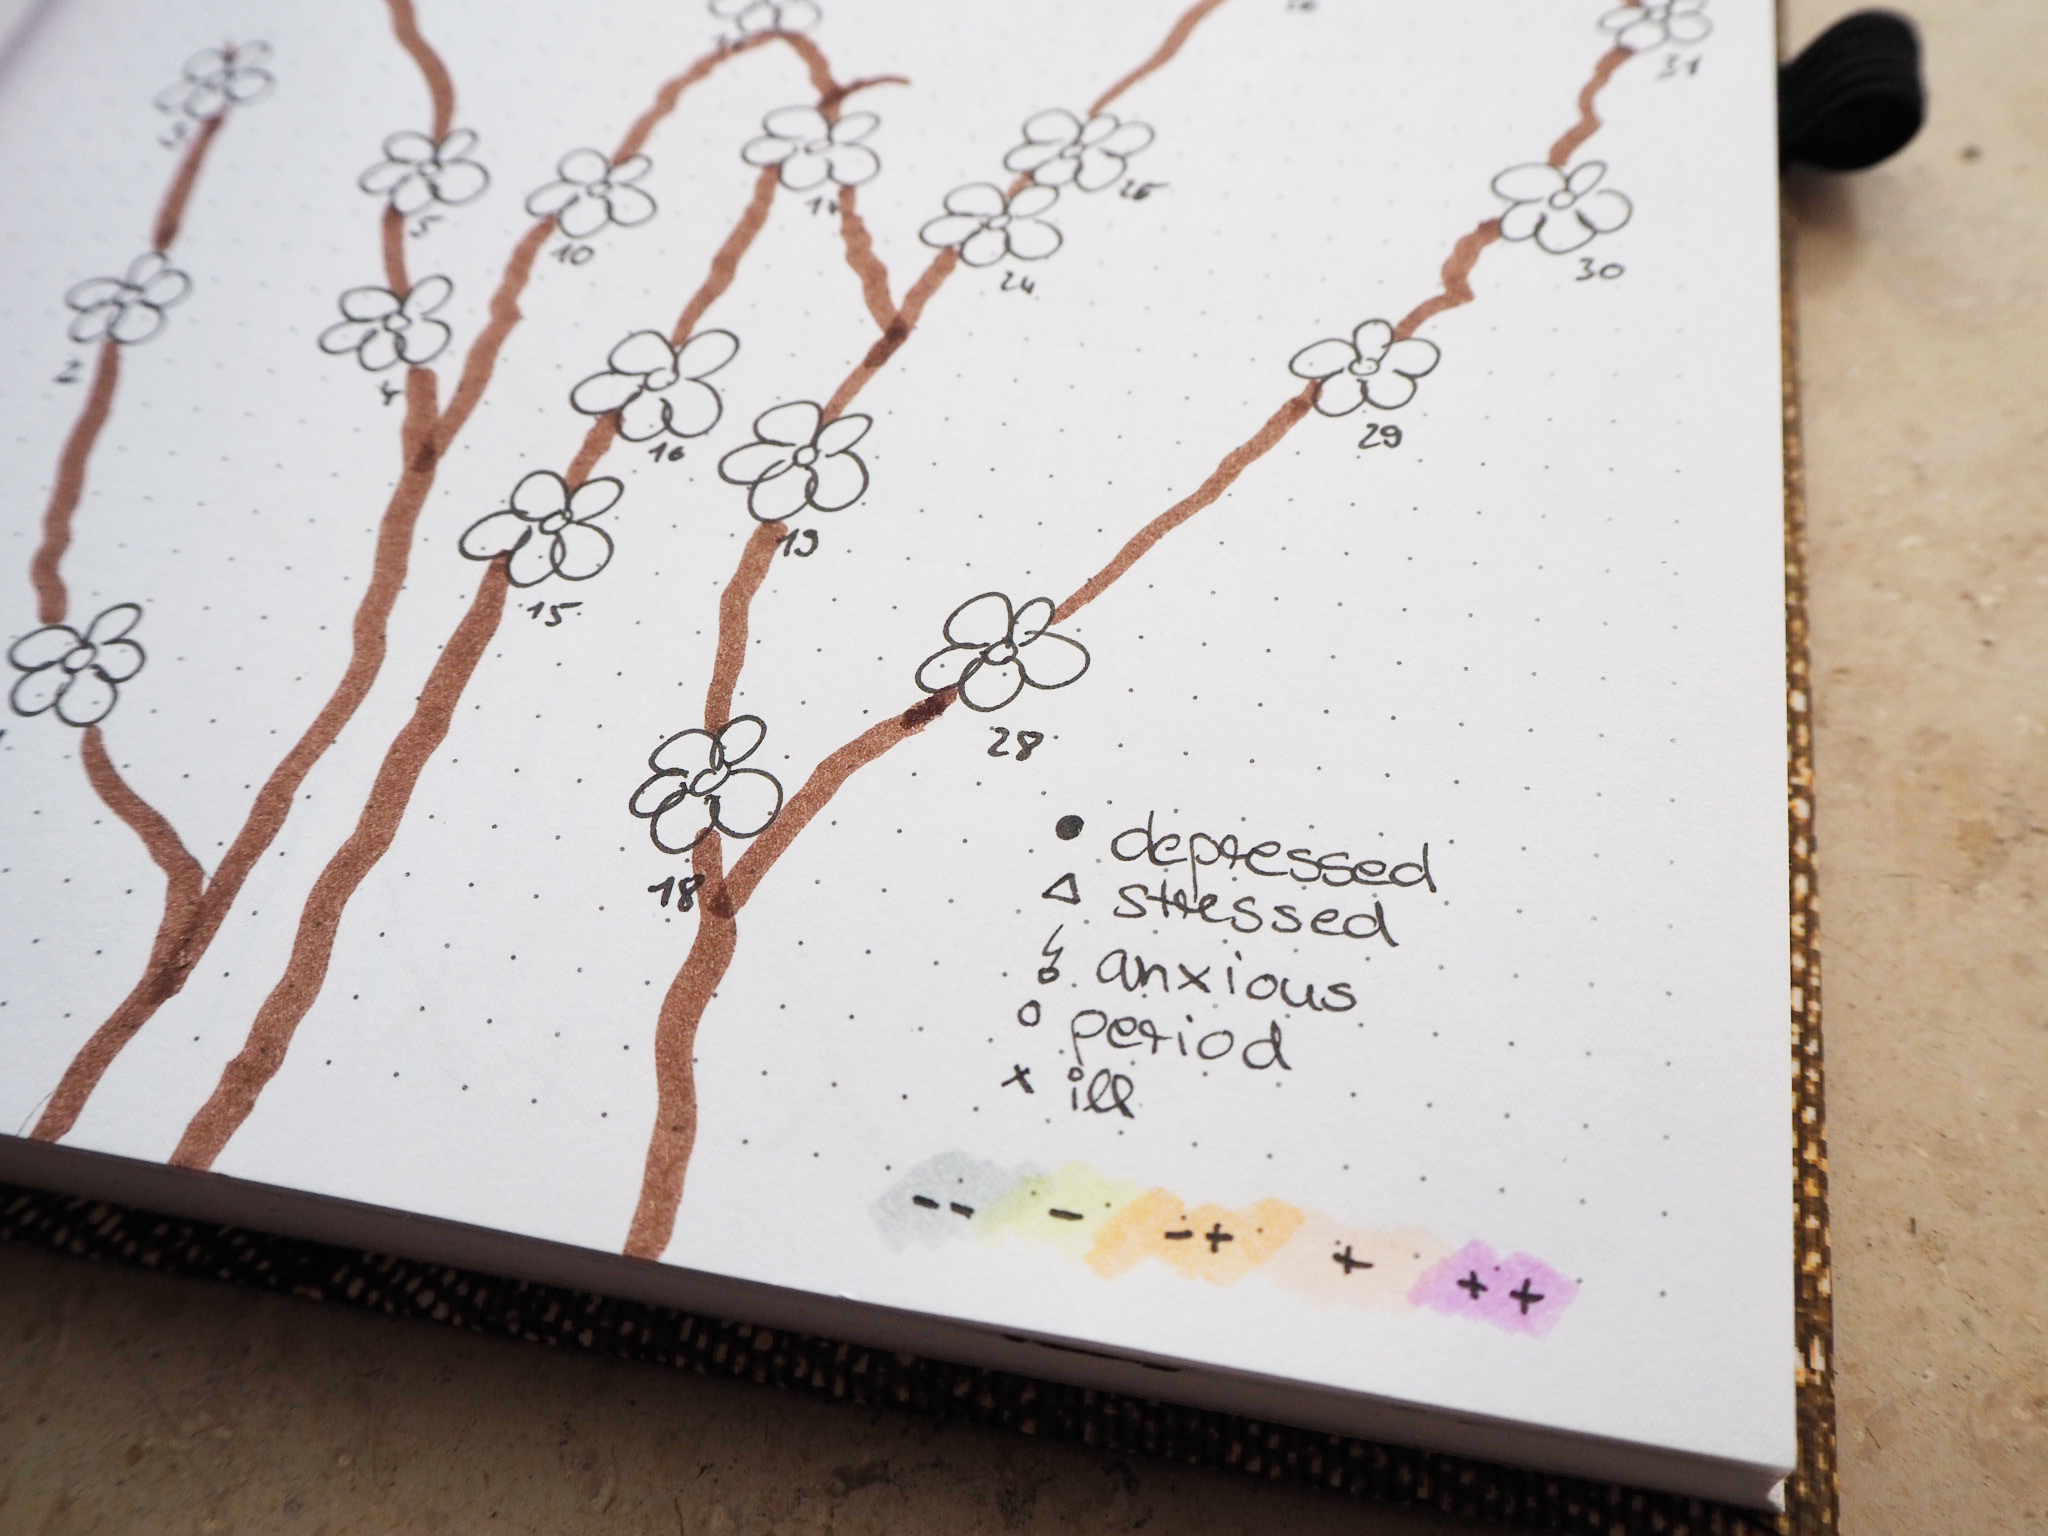 31
5
10
17
25
24
30
2
4
29
16
19
15
28
18
● depressed
△ stressed
anxious
○ period
x ill
-- - -+ + ++